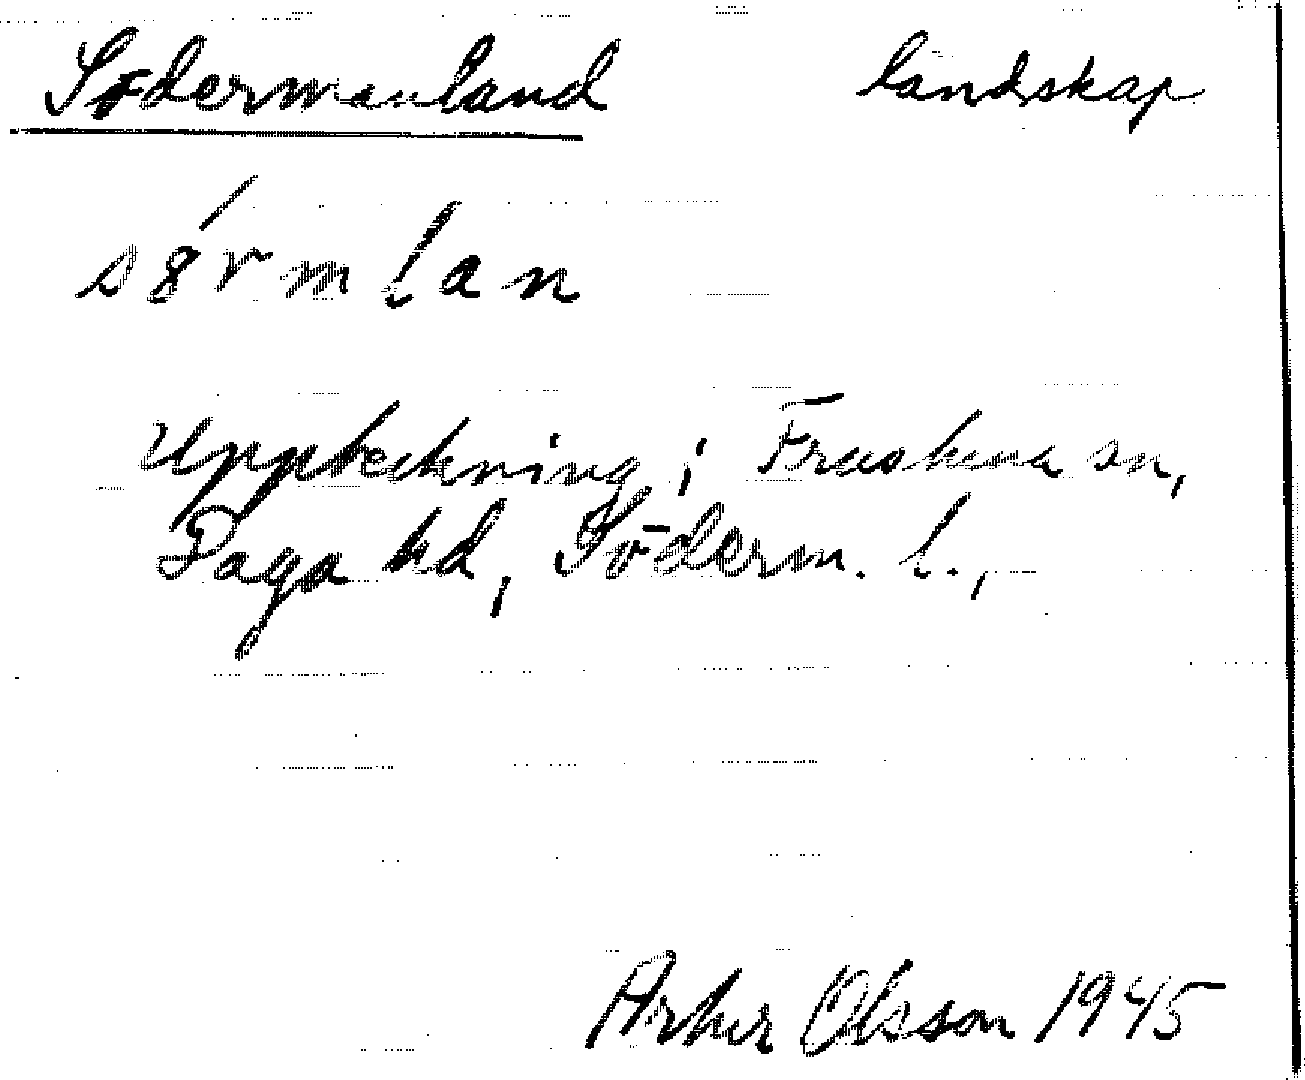 Södermanland landskap
s8́rmlan
Uppteckning i Fruskuna sn,
Daga hd, Söderm. l.,
Artur Olsson 1945